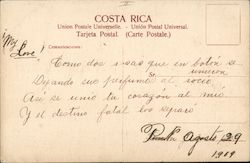 COSTA RICA
Union Postale Universelle. - Unión Postal Universal.
Tarjeta Postal. (Carte Postale.)
(My Love)
Comunicaciones:
Como dos rosas que en botón se
unieron
Dejando su perfume al rocío
Así se unió tu corazón al mío
Y el destino fatal los separó
Agosto 29
1909